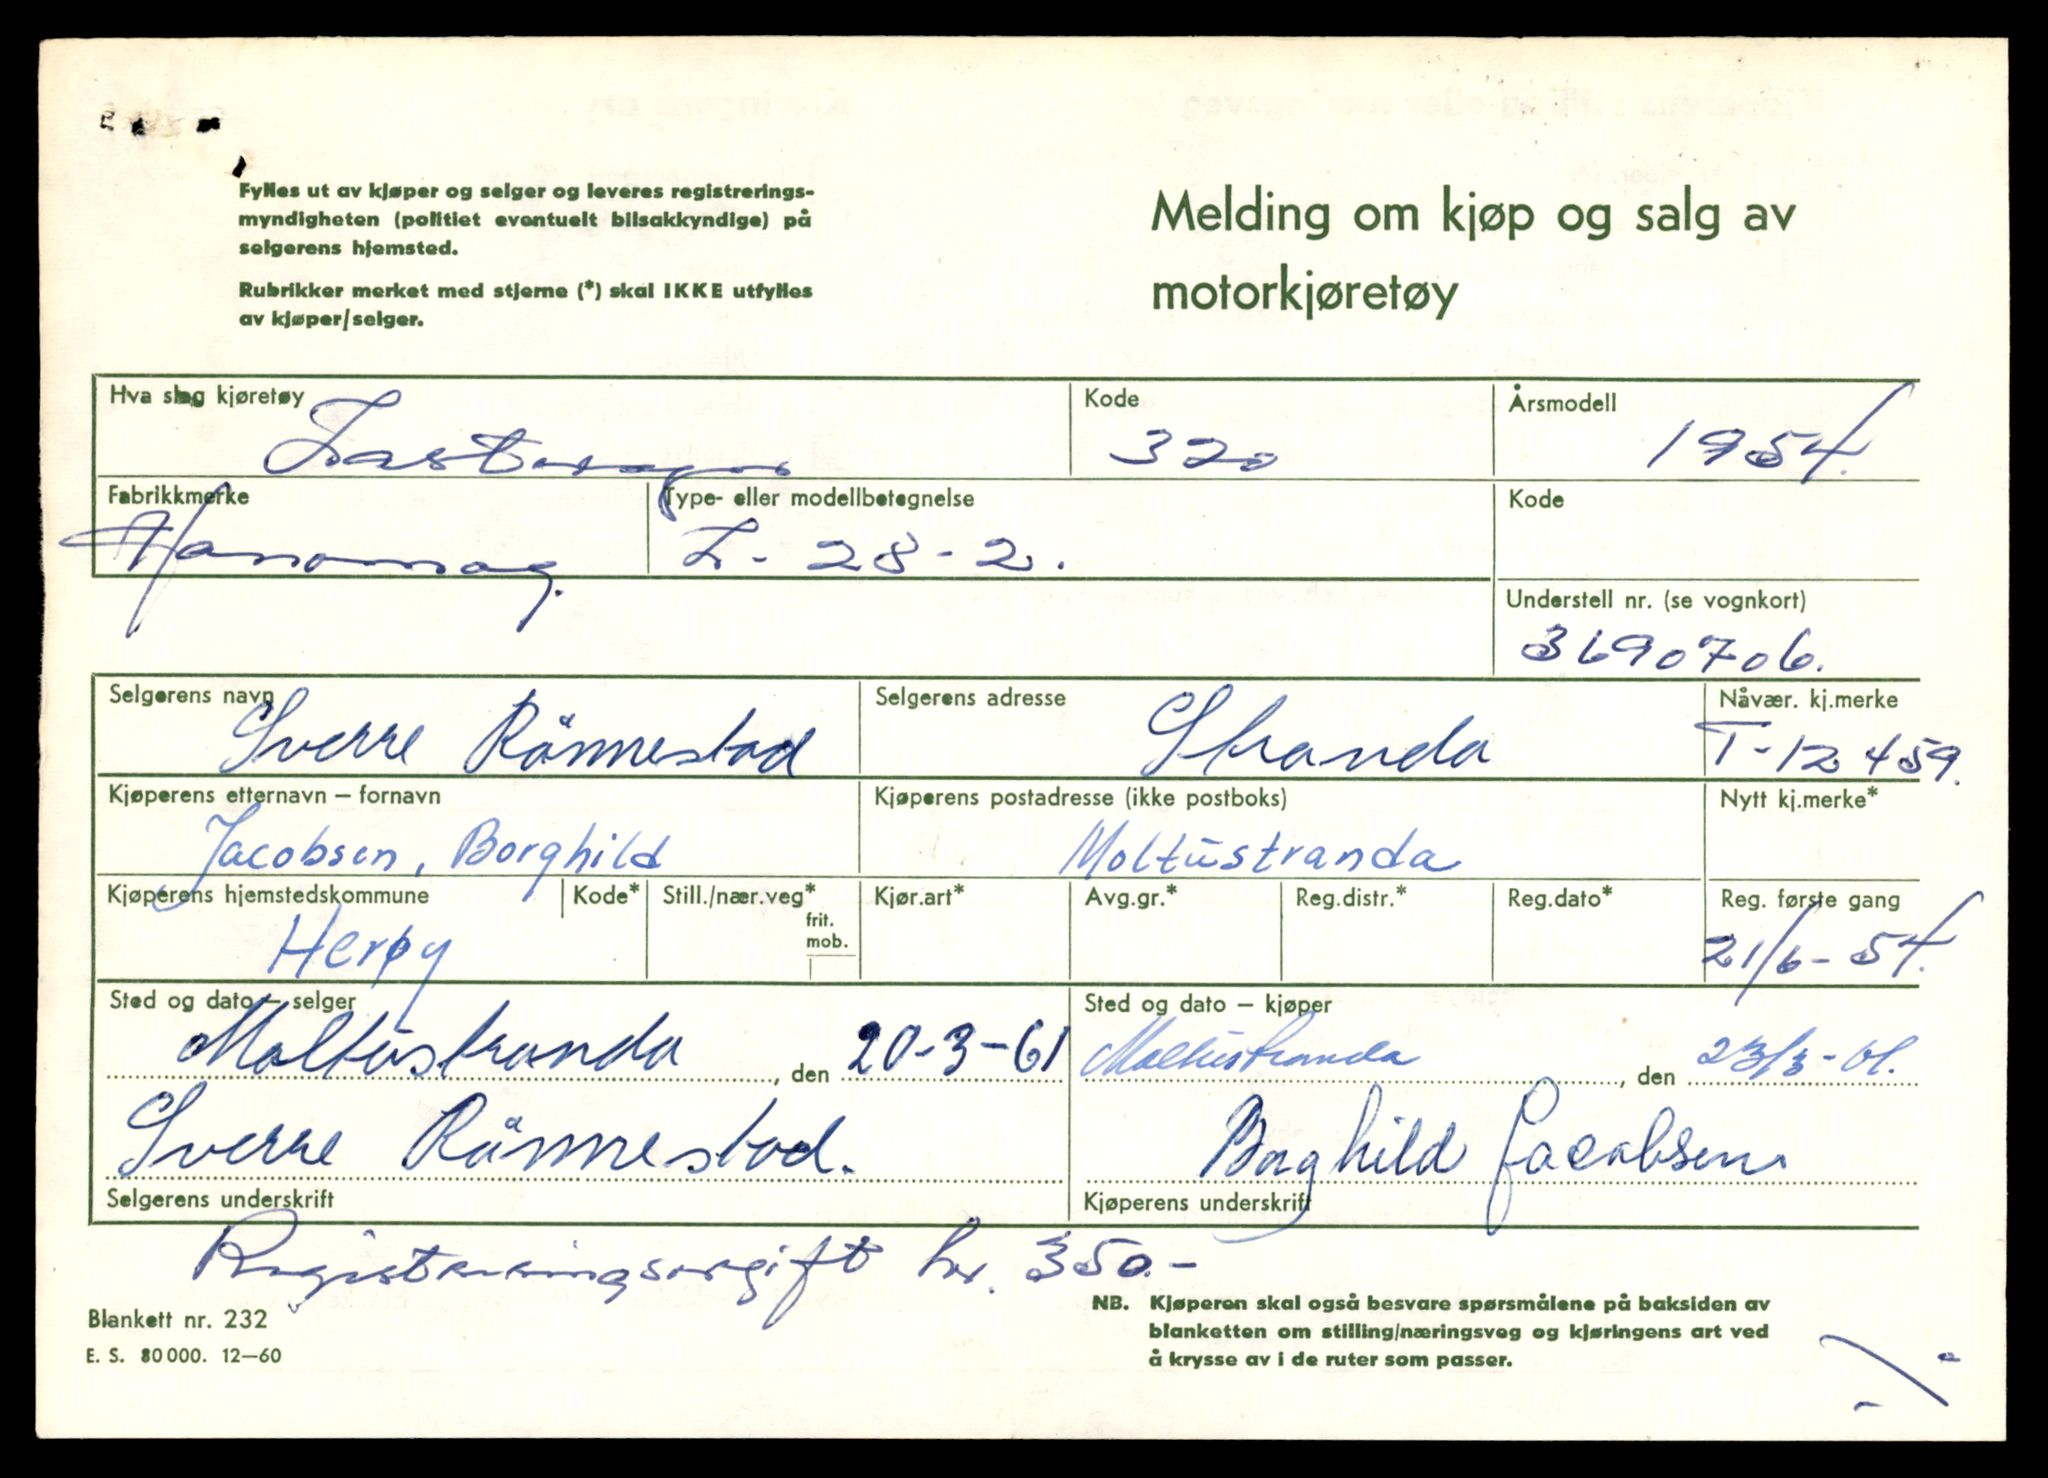 Fylles ut av kjøper og selger og leveres registrerings-
myndigheten (politiet eventuelt bilsakkyndige) på
selgerens hjemsted.
Rubrikker merket med stjerne (*) skal IKKE utfylles
av kjøper/selger.
Melding om kjøp og salg av
motorkjøretøy
Hva slag kjøretøy
Lastevogn
Kode
320
Årsmodell
1954.
Fabrikkmerke
Hanomag.
Type- eller modellbetegnelse
L-28-2.
Kode
Understell nr. (se vognkort)
3690706.
Selgerens navn
Sverre Rånnestad
Selgerens adresse
Stranda
Nåvær. kj.merke
T-12459.
Kjøperens etternavn – fornavn
Jacobsen, Borghild
Kjøperens postadresse (ikke postboks)
Moltustranda
Nytt kj.merke*
Kjøperens hjemstedskommune
Herøy
Kode*
Still./nær.veg*
frit.
mob.
Kjør.art*
Avg.gr.*
Reg.distr.*
Reg.dato*
Reg. første gang
21/6-54.
Sted og dato – selger
Moltustranda, den 20-3-61
Sverre Rånnestad.
Selgerens underskrift
Sted og dato – kjøper
Moltustranda, den 23/3-61.
Borghild Jacobsen
Kjøperens underskrift
Registreringsavgift kr. 350.-
Blankett nr. 232
E. S. 80 000. 12–60
NB. Kjøperen skal også besvare spørsmålene på baksiden av
blanketten om stilling/næringsveg og kjøringens art ved
å krysse av i de ruter som passer.